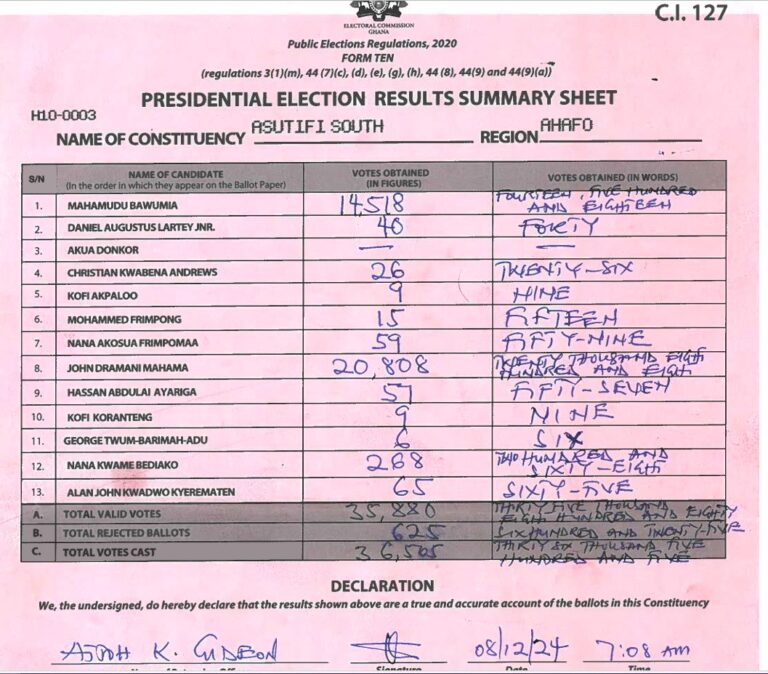 C.I. 127
ELECTORAL COMMISSION
GHANA
Public Elections Regulations, 2020
FORM TEN
(regulations 3(1)(m), 44 (7)(c), (d), (e), (g), (h), 44 (8), 44(9) and 44(9)(a))
PRESIDENTIAL ELECTION RESULTS SUMMARY SHEET
H10-0003
NAME OF CONSTITUENCY ASUTIFI SOUTH REGION AHAFO
S/N NAME OF CANDIDATE (In the order in which they appear on the Ballot Paper) VOTES OBTAINED (IN FIGURES) VOTES OBTAINED (IN WORDS)
1. MAHAMUDU BAWUMIA 14,518 FOURTEEN, FIVE HUNDRED AND EIGHTEEN
2. DANIEL AUGUSTUS LARTEY JNR. 40 FORTY
3. AKUA DONKOR — —
4. CHRISTIAN KWABENA ANDREWS 26 TWENTY-SIX
5. KOFI AKPALOO 9 NINE
6. MOHAMMED FRIMPONG 15 FIFTEEN
7. NANA AKOSUA FRIMPOMAA 59 FIFTY-NINE
8. JOHN DRAMANI MAHAMA 20,808 TWENTY THOUSAND EIGH HUNDRED AND EIGH
9. HASSAN ABDULAI AYARIGA 57 FIFTY-SEVEN
10. KOFI KORANTENG 9 NINE
11. GEORGE TWUM-BARIMAH-ADU 6 SIX
12. NANA KWAME BEDIAKO 268 TWO HUNDRED AND SIXTY-EIGH
13. ALAN JOHN KWADWO KYEREMATEN 65 SIXTY-FIVE
A. TOTAL VALID VOTES 35,880 THIRTY FIVE THOUSAND EIGH HUNDRED AND EIGHTY
B. TOTAL REJECTED BALLOTS 625 SIX HUNDRED AND TWENTY-FIVE
C. TOTAL VOTES CAST 36,505 THIRTY SIX THOUSAND FIVE HUNDRED AND FIVE
DECLARATION
We, the undersigned, do hereby declare that the results shown above are a true and accurate account of the ballots in this Constituency
K. GIDEON 08/12/24 7:08 AM
Signature Date Time